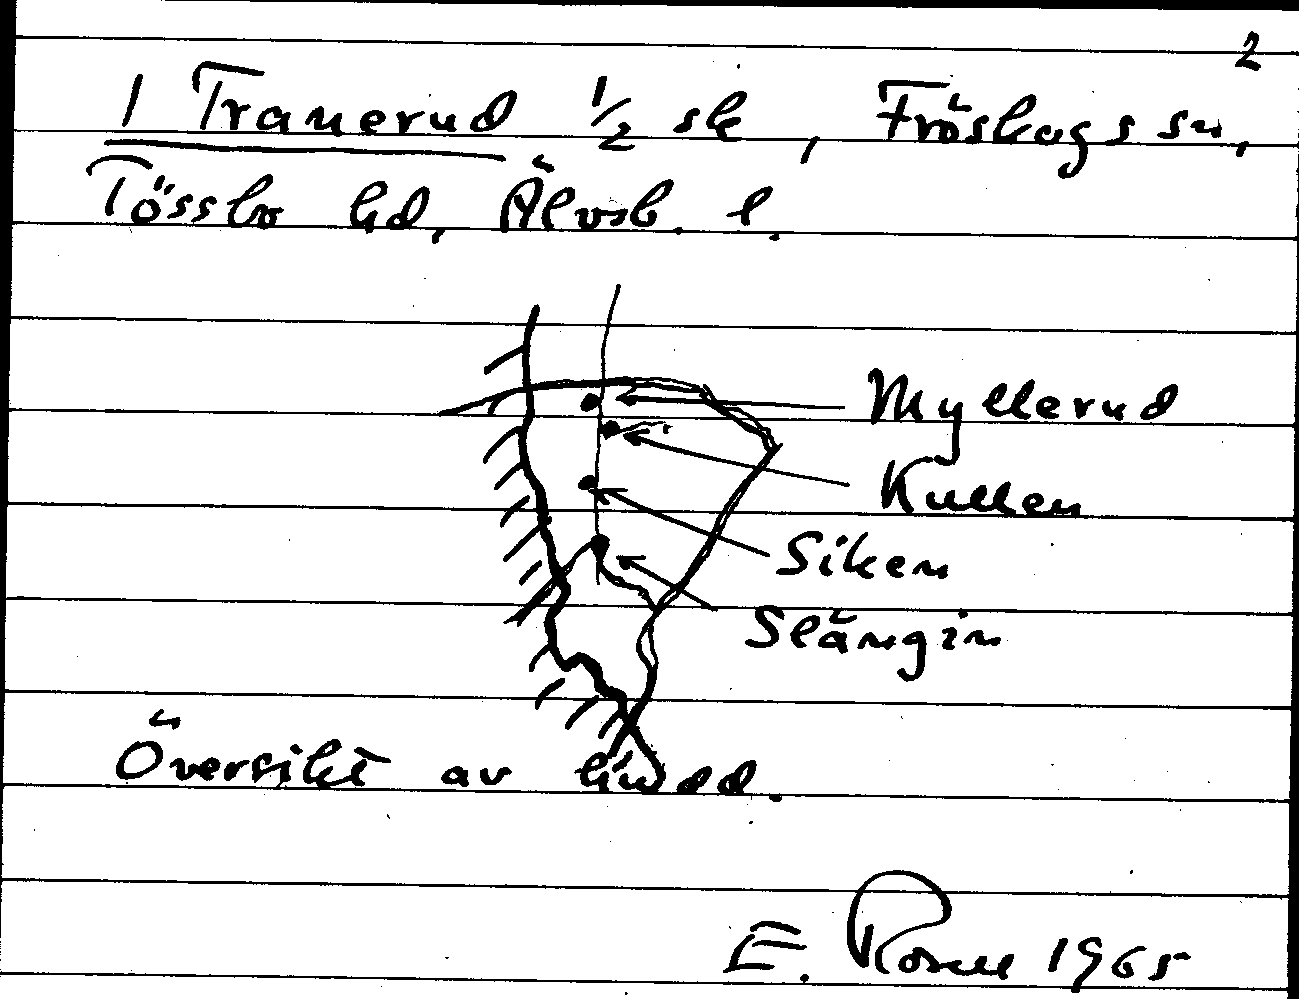 2
1 Tranerud 1/2 sk, Fröskogs sn,
Tössbo hd, Älvsb. l.
Myllerud
Kullen
Siken
Slängin
Översikt av
E. 1965